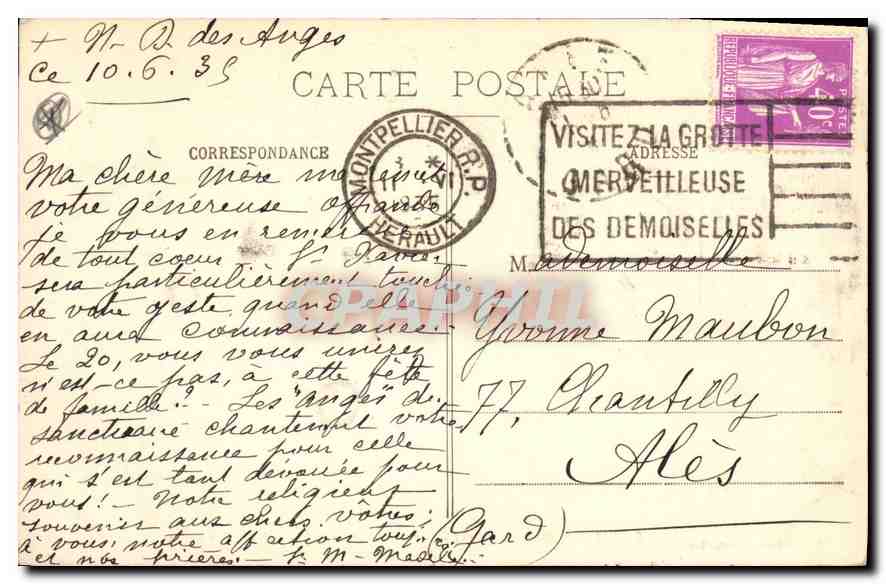 + N. D. des Anges
Ce 10.6.35
CARTE POSTALE
REPUBLIQUE FRANCAISE
POSTES
40c
MONTPELLIER R.P.
3 *
11 VI
1935
HERAULT
VISITEZ LA GROTTE
MERVEILLEUSE
DES DEMOISELLES
CORRESPONDANCE
ADRESSE
Ma chère mère m'a remis
votre généreuse offrande
je vous en remercie
de tout coeur. Sr Xavier
sera particulièrement touchée
de votre geste quand elle
en aura connaissance.
Le 20, vous vous unirez
n'est-ce pas, à cette fête
de famille? - Les "anges" du
sanctuaire chanteront votre
reconnaissance pour celle
qui s'est tant dévouée pour
vous! - Notre religieux
souvenir aux chers vôtres;
à vous, notre affection
et nos prières. - Sr M.
Mademoiselle
Yvonne Maubon
77, Chantilly
Alès
(Gard)
CPAPHIL